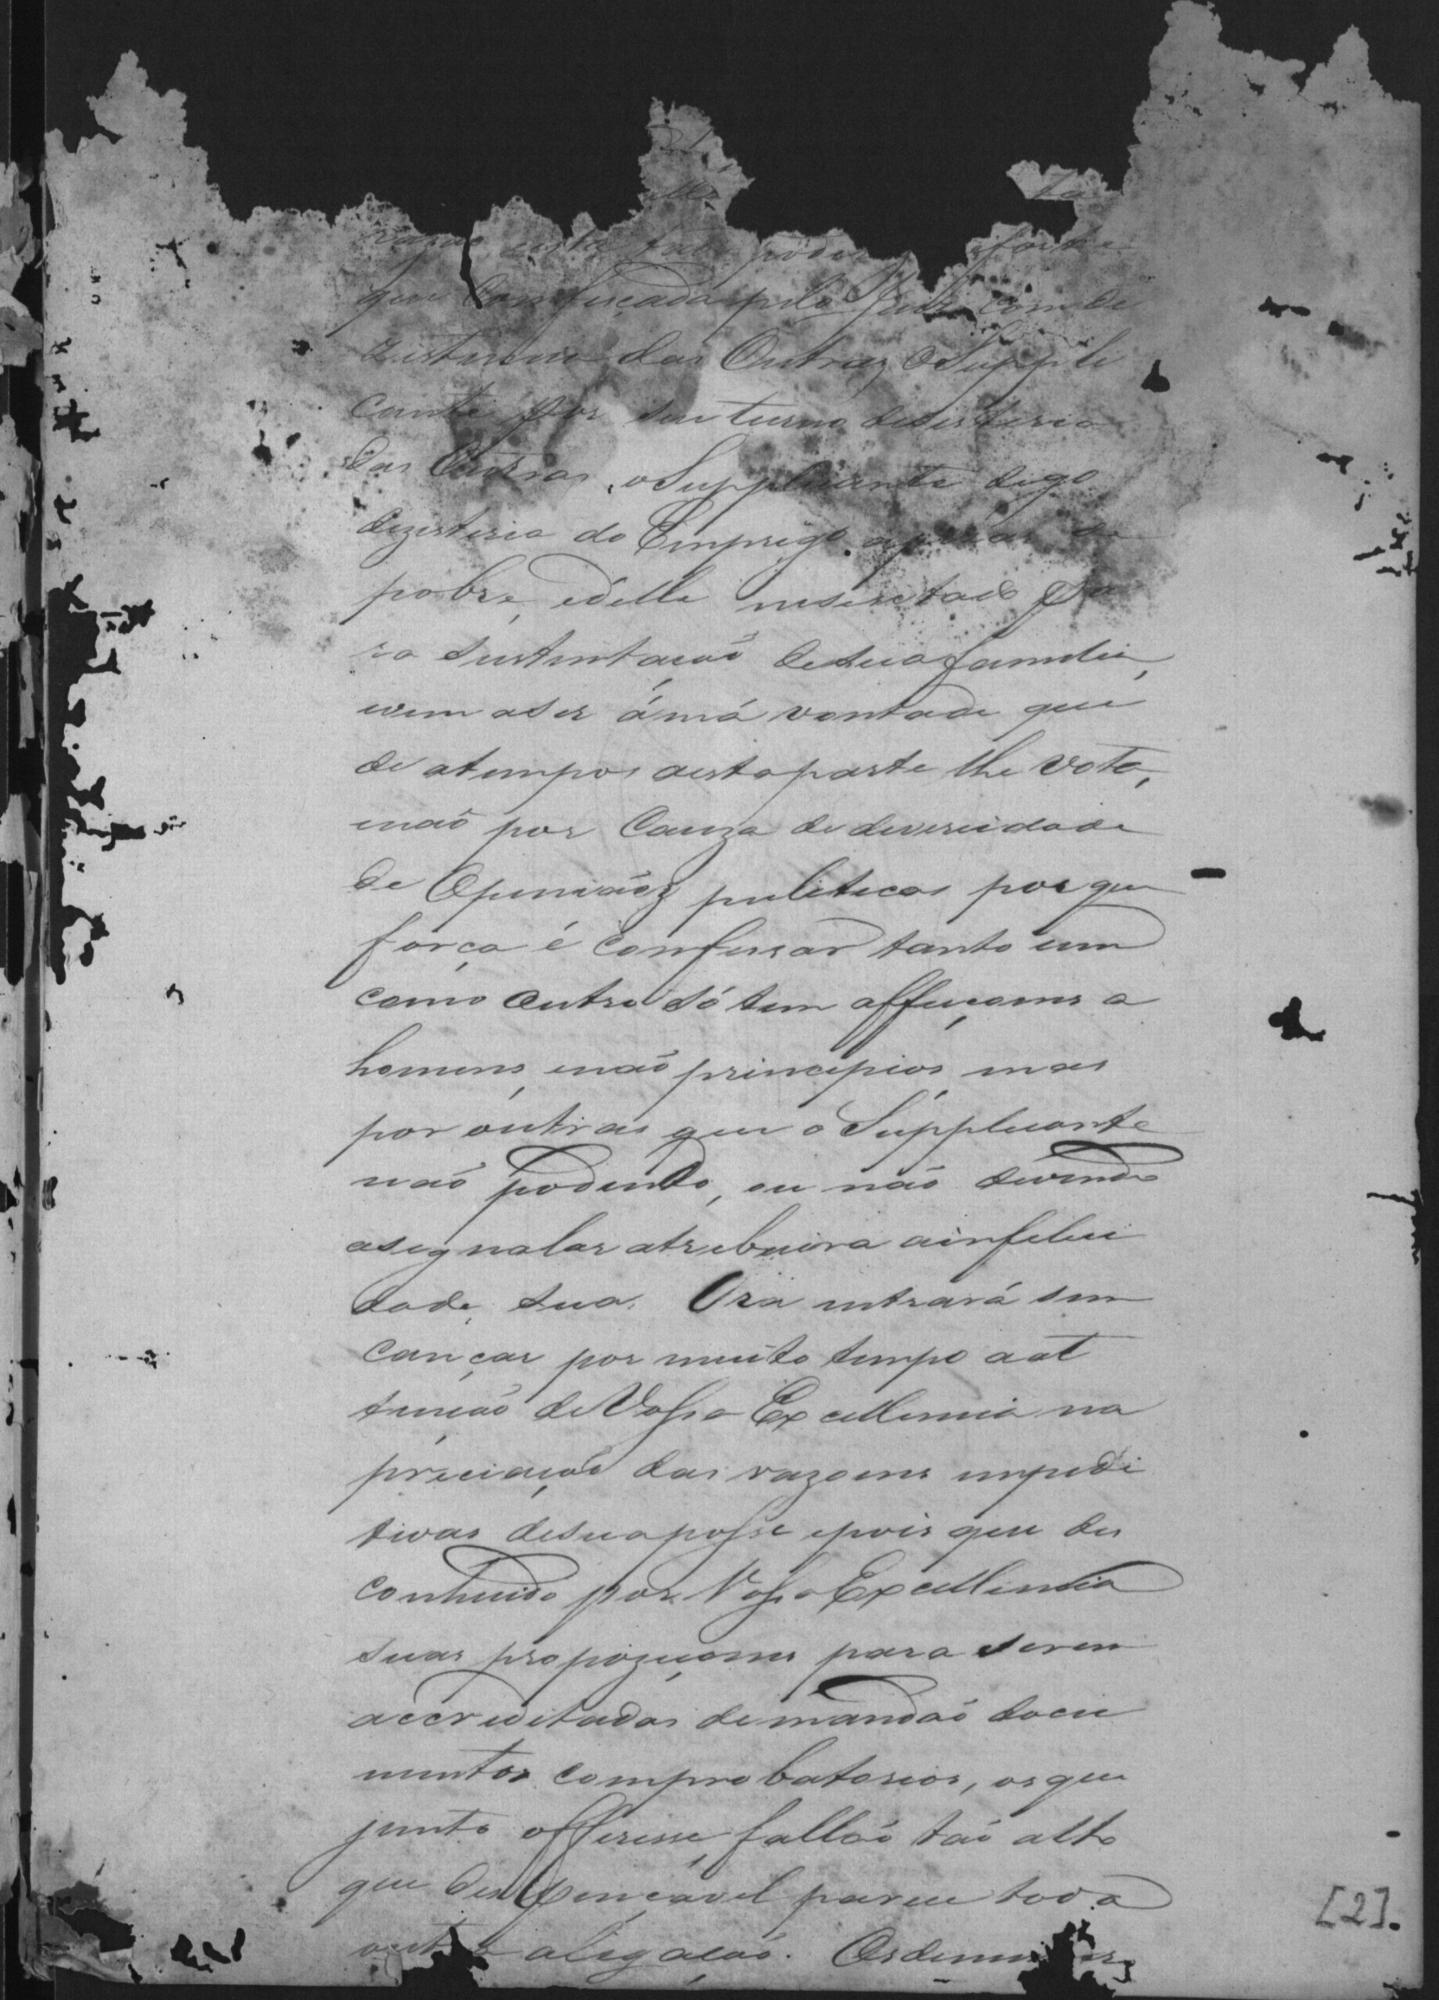 que confiscada pela
das Outras, o Suppli
cante por seu turno desisteria
das Outras, o Supplicante digo
dezisteria do Emprego apezar de
pobre, e d'elle necessetado pa
ra sustentação de sua familia,
vem a ser á má vontade que
de a tempos a esta parte lhe vota,
e não por Cauza de deversidade
de Openiãoz puleticas por que
força é confessar tanto um
como Outro só tem affeiçoens a
homens, e não principios, mas
por outras que o Supplicante
não podendo, ou não devendo
asignalar atrebuira a infelici
dade, sua. Ora entrará sem
cançar por muito tempo a at
tenção de Vossa Excellencia na
preciação das razoens empedi
tivas de sua posse e pois que des
conhecido por Vossa Excellencia
suas propoziçoens para serem
accreditadas demandão docu
mentos comprobatorios, os que
junto offeresse, fallão tão alto
que despençavel parece toda
outra alegação.
[2].